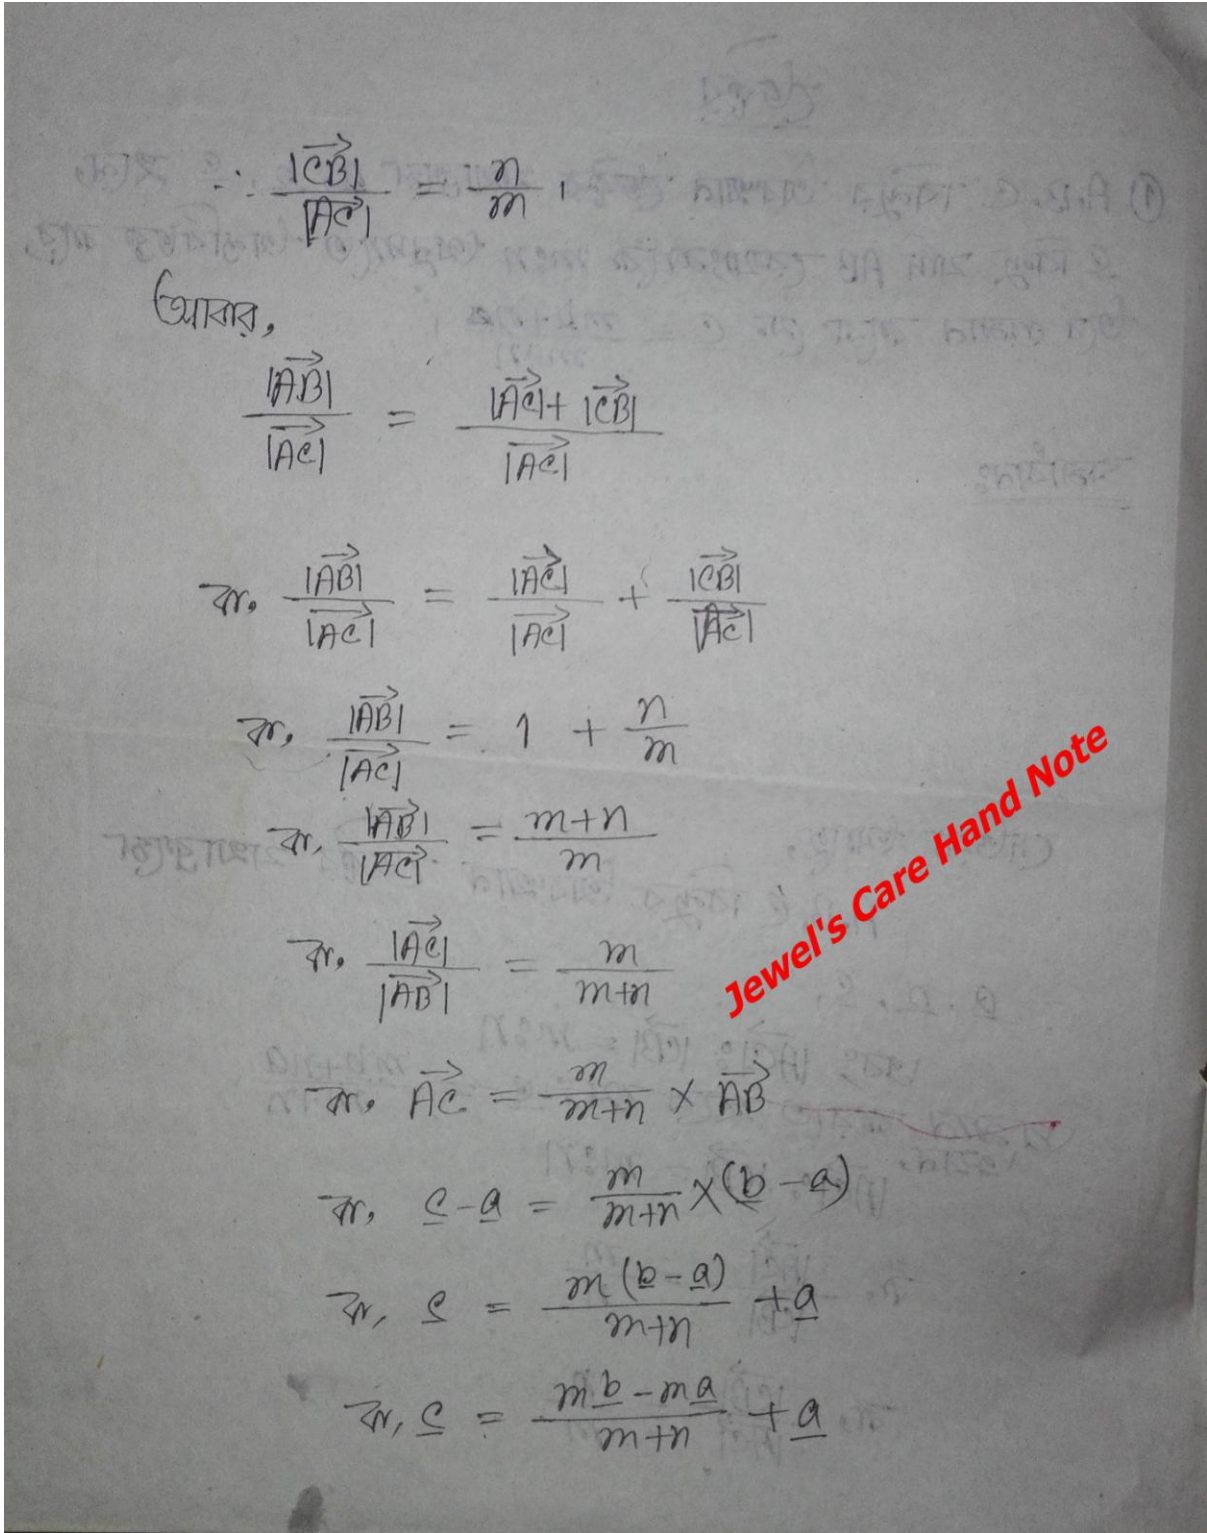 ∴ |CB→| / |AC→| = n/m ।
আবার,
|AB→| / |AC→| = (|AC→| + |CB→|) / |AC→|
বা, |AB→| / |AC→| = |AC→| / |AC→| + |CB→| / |AC→|
বা, |AB→| / |AC→| = 1 + n/m
বা, |AB→| / |AC→| = (m+n) / m
বা, |AC→| / |AB→| = m / (m+n)
বা, AC→ = m/(m+n) × AB→
বা, c̲ - a̲ = m/(m+n) × (b̲ - a̲)
বা, c̲ = m(b̲ - a̲)/(m+n) + a̲
বা, c̲ = (mb̲ - ma̲)/(m+n) + a̲
Jewel's Care Hand Note